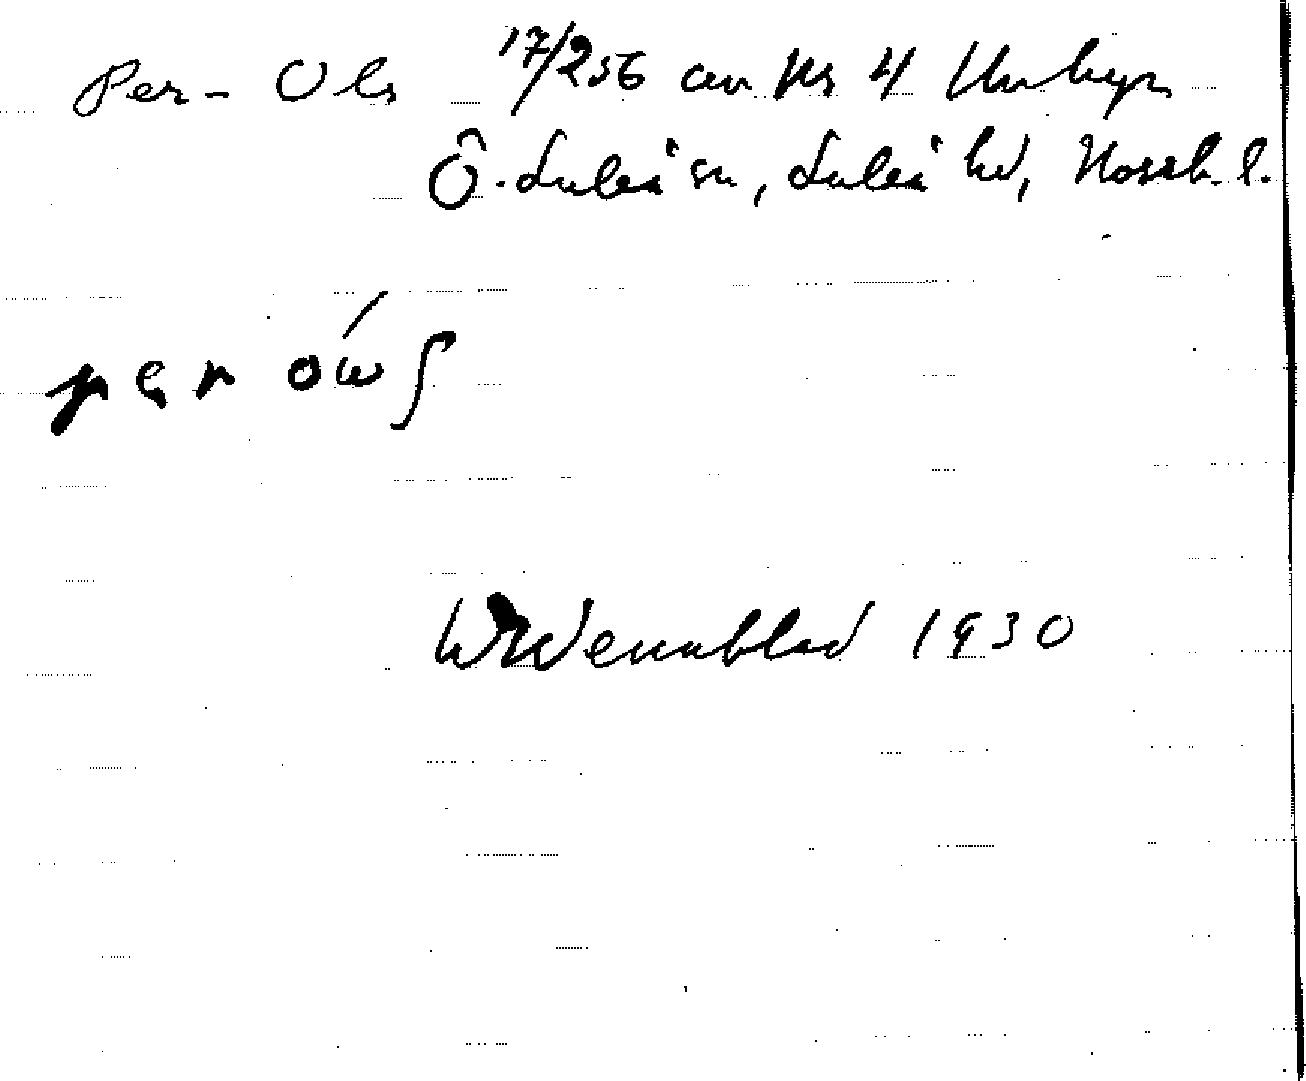 Per-Ols 17/256 av Nr 4 Unbyn
Ö. Luleå sn, Luleå hd, Norrb. l.
W Wennblad 1930